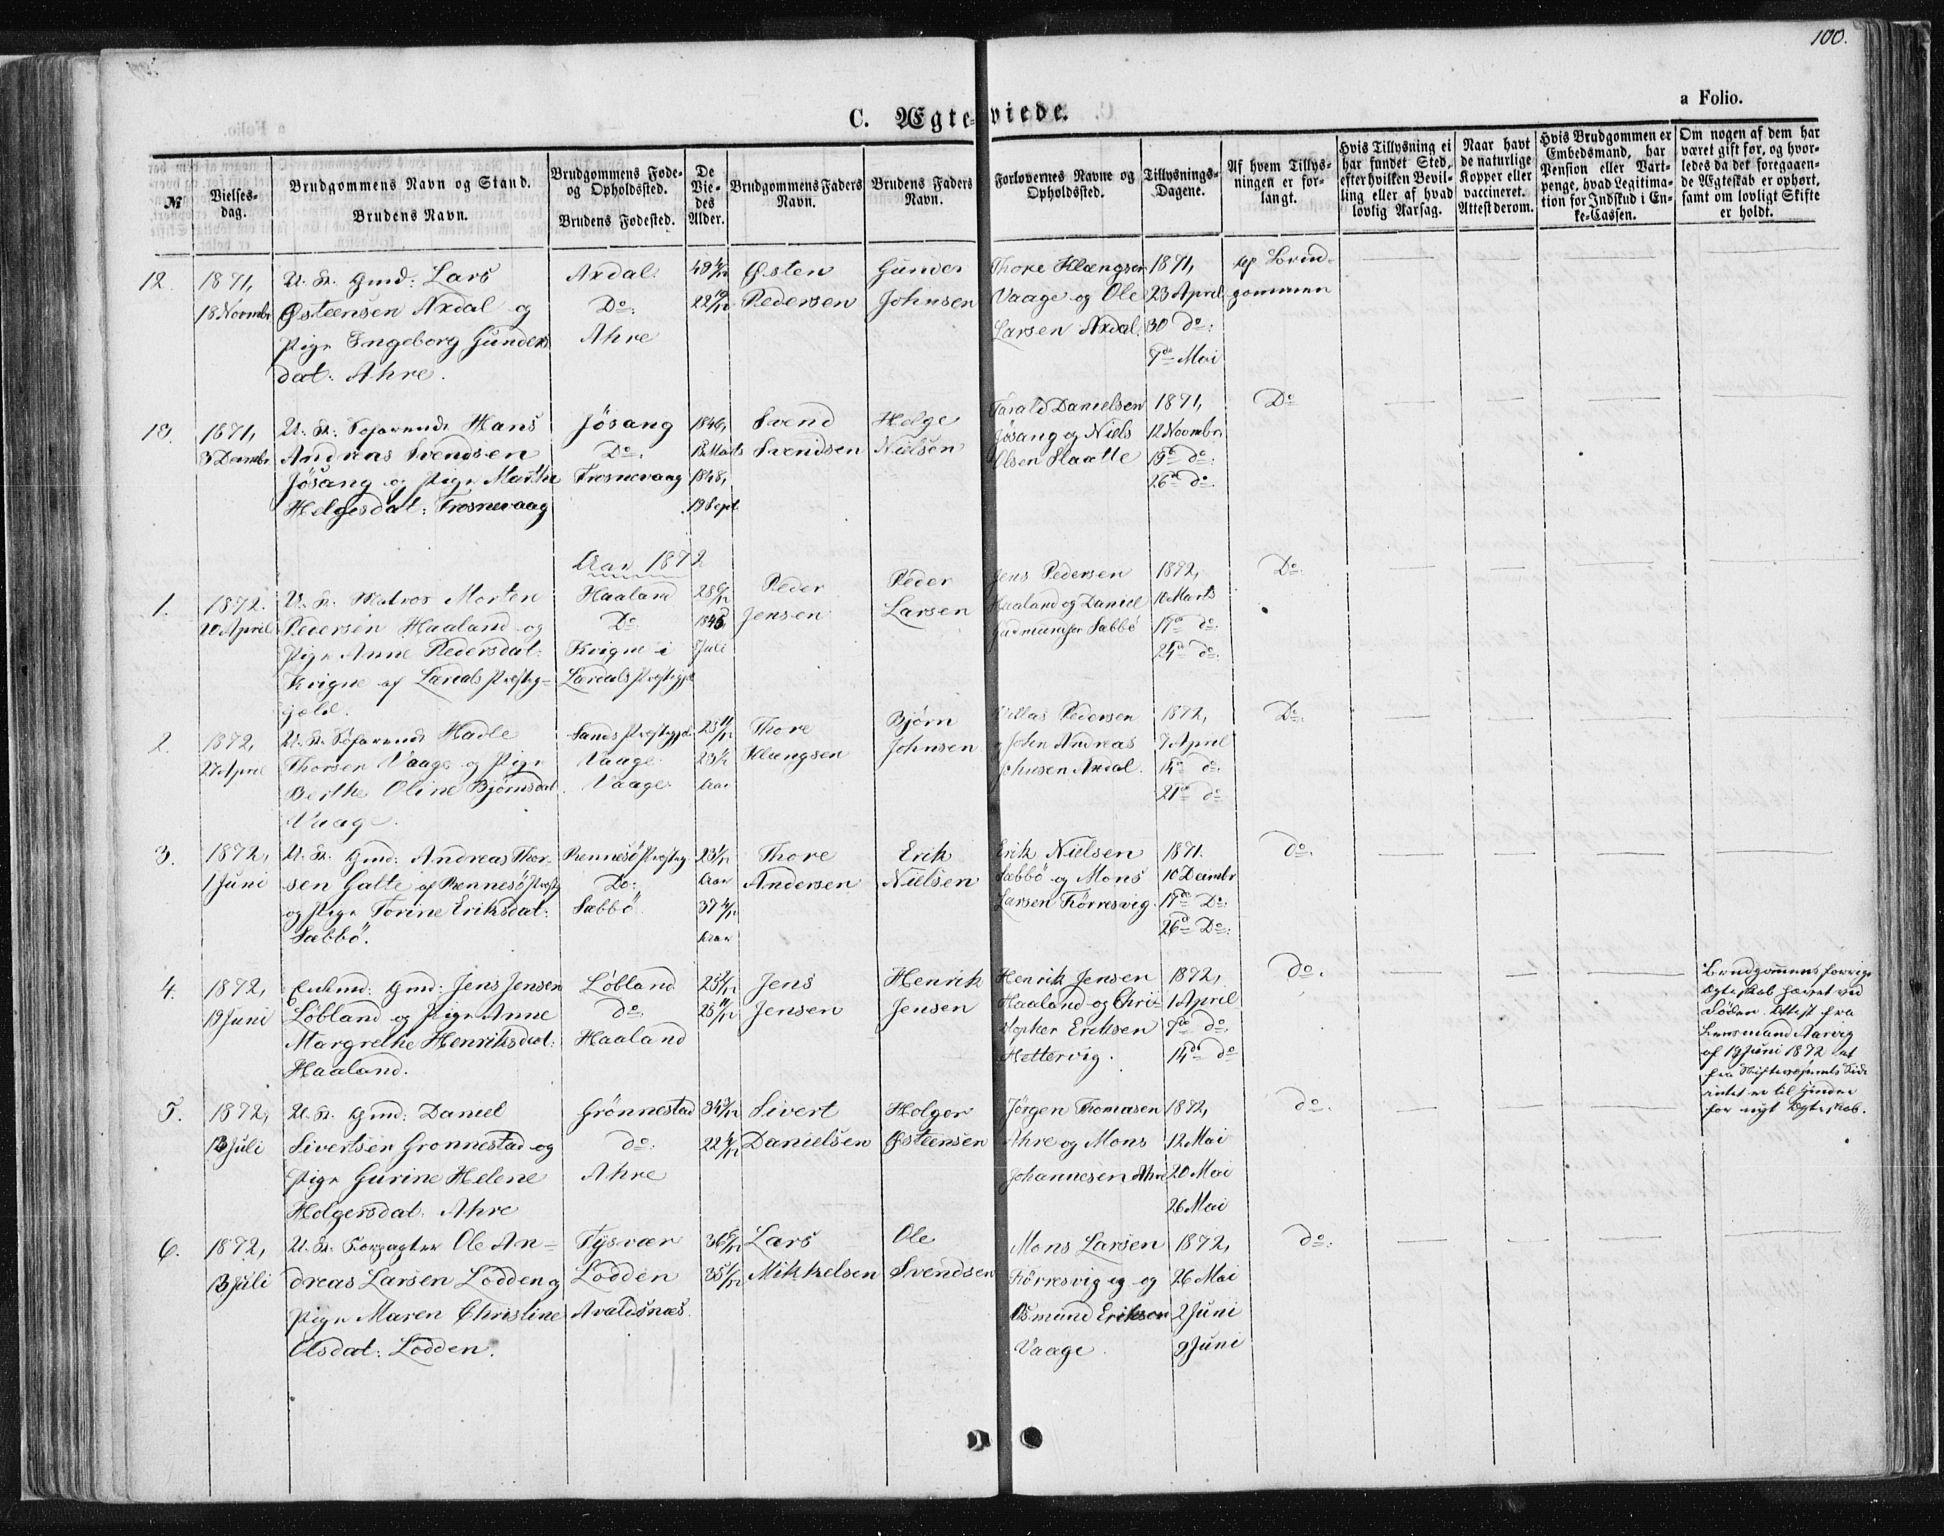 100.
a Folio.
C. Ægteviede.
№
Vielses-
dag.
Brudgommens Navn og Stand.
Brudens Navn.
Brudgommens Føde-
og Opholdssted.
Brudens Fødested.
De
Vie-
des
Alder.
Brudgommens Faders
Navn.
Brudens Faders
Navn.
Forlovernes Navne og
Opholdssted.
Tillysnings-
Dagene.
Af hvem Tillys-
ningen er for-
langt.
Hvis Tillysning ei
har fundet Sted,
efter hvilken Bevil-
ling eller af hvad
lovlig Aarsag.
Naar havt
de naturlige
Kopper eller
vaccineret.
Attest derom.
Hvis Brudgommen er
Embedsmand, har
Pension eller Vart-
penge, hvad Legitima-
tion for Indskud i En-
ke-Cassen.
Om nogen af dem har
været gift før, og hvor-
ledes da det foregaaen-
de Ægteskab er ophørt,
samt om lovligt Skifte
er holdt.
12.
1871,
18 Novmbr
U. K. Gmd: Lars
Østeensen Axdal og
Pige Ingeborg Gunders
dat: Ahre.
Axdal.
Do:
Ahre
22 10/12
Østen
Pedersen
Gunder
Johnsen
Thore Klængsen
Vaage og Ole
Larsen Axdal.
1871,
23 April
30 do:
7de Mai
af Brud-
gommen
13.
1871,
3 Decmbr
U. K. Søfarende Hans
Andreas Svendsen
Jösang og Pige Marthe
Helgesdat: Frosnevaag
Jösang
Do.
Frosnevaag
1846,
13 Marts
1848,
19 Sept
Svend
Svendsen
Helge
Nielsen
Tarald Danielsen
Jösang og Niels
Olsen Slaatte
1871,
12 Novmbr
19de do:
26de do.
Do
Aar 1872
1.
1872.
20 April
U. K. Matros Morten
Pedersen Haaland og
Pige Anne Pedersdat:
Kvigne af Lærdals Præsteg-
jeld.
Haaland
Do
Kvigne i
Lærdals Præstegjeld
28 6/12
1845
Juli
Peder
Jensen
Peder
Larsen
Jens Pedersen
Haaland og Daniel
Gudmundsen Sæbbö
1872,
10 Marts
17de do:
24de do:
Do:
2.
1872,
27 April
U. K. Søfarende Hadle
Thorsen Vaage og Pige
Berthe Oline Bjørnsdat
Vaage.
Sands Præstegjd.
Vaage
Vaage.
25 11/12
23 1/2
Aar
Thore
Klængsen
Bjørn
Johnsen
Pedersen
og John Andreas
Johnsen Axdal.
1872,
7 April
14de do:
21de do
Do:
3.
1872,
1 Juni
U. K. Gmd: Andreas Thor-
sen Galte af Rennesö Præsteg
og Pige Torine Eriksdat:
Sæbbö.
Rennesö Præsteg
Do:
Sæbbö.
23 1/12
Aar
Aar
Thore
Andersen
Erik
Nielsen
Erik Nielsen
Sæbbö og Mons
Larsen Förresvig.
1871.
10 Decmbr
17de Do:
26de Do:
do:
4.
1872,
19 Juni
Enkmd: Gmd: Jens Jensen
Löbland og Pige Anne
Margrethe Henriksdat:
Haaland.
Löbland
do:
Haaland
25 11/12
Jens
Jensen
Henrik
Jensen
Henrik Jensen
Haaland og Chri-
stopher Eriksen
Hettervig.
1872,
1 April
7de do.
14de do
do.
Brudgommens forrige
Ægteskab hævet ved
Döden. Attest fra
Lensmand Aarvig
af 19 Juni 1872 at
fra Skiftevæsenets Side
intet er til Hinder
for nyt Ægteskab.
5.
1872,
13 Juli
U. K. Gmd: Daniel
Sivertsen Grönnestad og
Pige Gurine Helene
Holgersdat. Ahre
Grönnestad
do:
Ahre
Sivert
Danielsen
Holger
Østeensen
Jörgen Thomasen
Ahre og Mons
Johannesen Ahre
1872,
12 Mai
20 Mai
26 Mai
do:
6.
1872,
13 Juli
U. K. Forpagter Ole An-
dreas Larsen Lodden og
Pige Maren Christine
Olsdat: Lodden.
Tysvær
Lodden
Avaldsnæs.
Lars
Mikkelsen
Ole
Svendsen
Mons Larsen
Förresvig og
Osmund Eriksen
Vaage.
1872,
26 Mai
2 Juni
9 Juni
do: